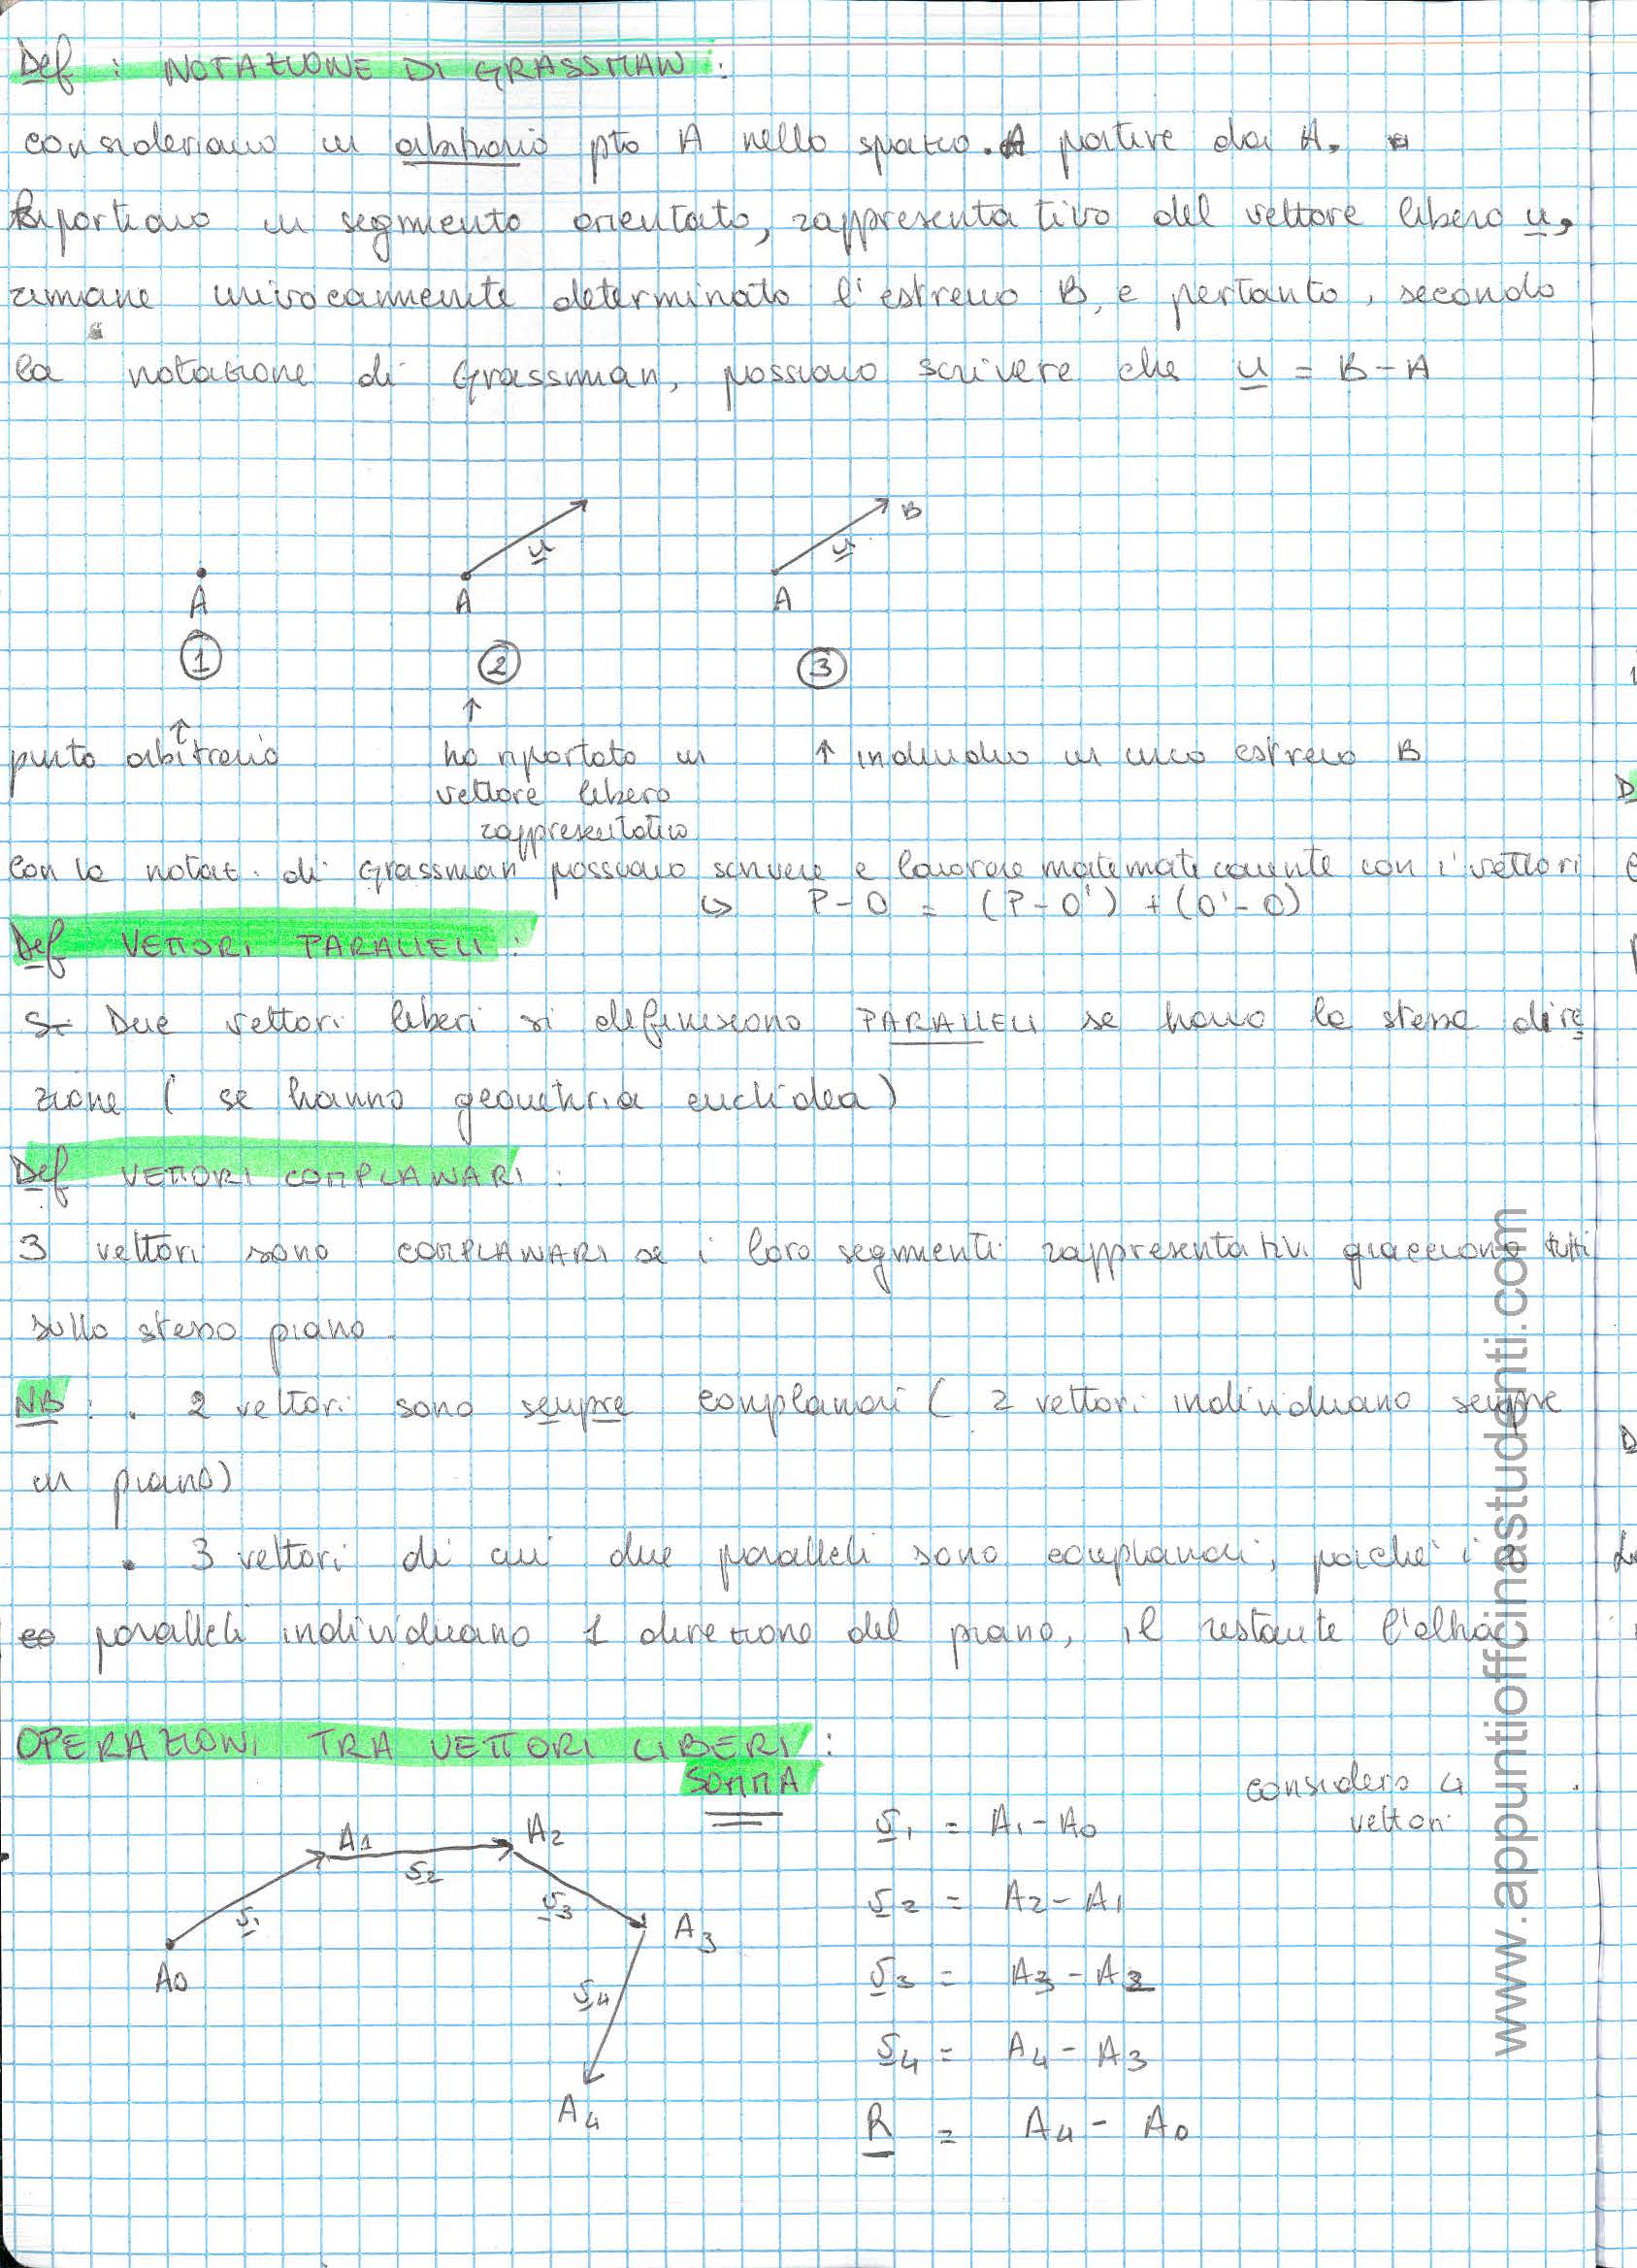 Def : NOTAZIONE DI GRASSMAN :
consideriamo un arbitrario pto A nello spazio. A partire da A,
riportiamo un segmento orientato, rappresentativo del vettore libero u,
rimane univocamente determinato l'estremo B, e pertanto, secondo
la notazione di Grassman, possiamo scrivere che u = B - A
u
A
1
u
A
2
B
u
A
3
punto arbitrario
ho riportato un
vettore libero
rappresentativo
↑ individuo un unico estremo B
Con la notaz. di Grassman possiamo scrivere e lavorare matematicamente con i vettori
↳ P - O = (P - O') + (O' - O)
Def VETTORI PARALLELI :
Due vettori liberi si definiscono PARALLELI se hanno la stessa dire
zione ( se hanno geometria euclidea)
Def VETTORI COMPLANARI :
3 vettori sono COMPLANARI se i loro segmenti rappresentativi giacciono tutti
sullo stesso piano.
NB : . 2 vettori sono sempre complanari ( 2 vettori individuano sempre
un piano)
• 3 vettori di cui due paralleli sono complanari, poiché i 2
paralleli individuano 1 direzione del piano, il restante l'altra
OPERAZIONI TRA VETTORI LIBERI :
SOMMA
considero 4
vettori
A0
v1
A1
v2
A2
v3
A3
v4
A4
v1 = A1 - A0
v2 = A2 - A1
v3 = A3 - A2
v4 = A4 - A3
R = A4 - A0
www.appuntiofficinastudenti.com